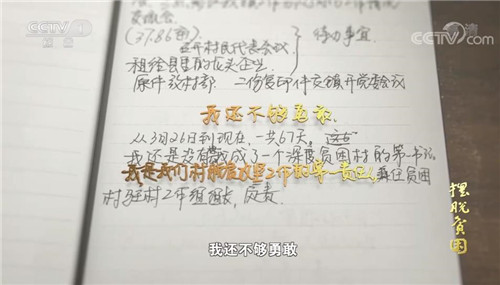 CCTV 1
综合
CCTV.com
(37.86亩)
召开村民代表会议
待办事宜
租给县里的龙头企业
原件放村部 二份复印件交镇开党委会议
我还不够勇敢
从3月26日到现在,一共67天,
我还是没有
成了一个深度贫困村的第一书记
我是我们村脱贫攻坚工作的第一责任人
兼任贫困
村驻村工作组组长,
我还不够勇敢
摆脱贫困